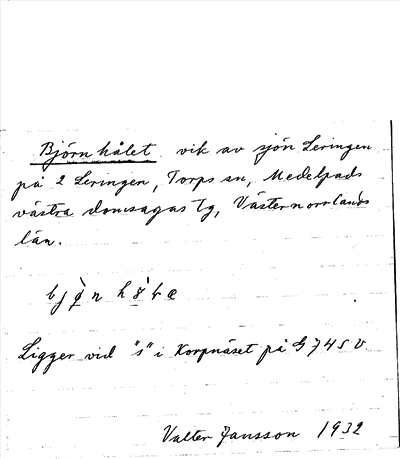 Björnhålet vik av sjön Leringen
på 2 Leringen, Torps sn, Medelpads
västra domsagas tg, Västernorrlands
län.
Ligger vid "s" i Korpnäset på G 74 S V.
Valter Jansson 1932